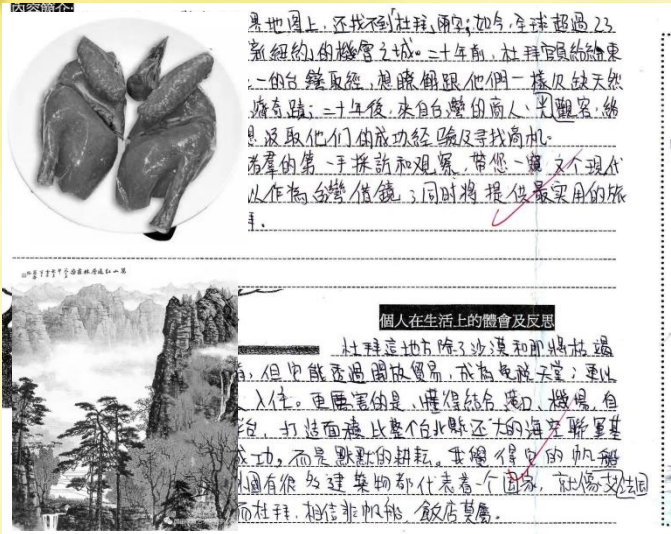 內容簡介:
界地圖上,还找不到「杜拜」兩字;如今,全球超過23
新紐約」的機會之城。二十年前,杜拜官員紛紛東
一的台灣取經,想瞭解跟他們一樣仅缺天然
濟奇蹟;二十年後,來自台灣的商人、光觀客,紛
思汲取他们的成功经驗及寻找商机。
者群的第一手採訪和观察,帶您一窺这个現代
以作為台灣借鏡;同时將提供最实用的旅
個人在生活上的體會及反思
杜拜這地方除了沙漠和即將枯竭
,但它能透過開放貿易,成為免税天堂;更以
入住。更厲害的是,懂得結合港口、機場、自
,打造面積比整个台北縣还大的海空聯運基
成功,而是默默的耕耘。我覺得它的帆船
國有很多建築物都代表着一个国家,就像去法国
而杜拜,相信非帆船飯店莫屬。